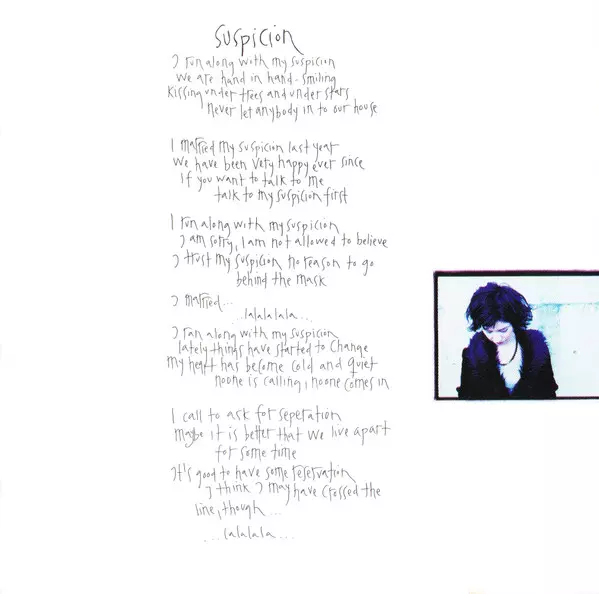 Suspicion
I run along with my suspicion
we are hand in hand - smiling
kissing under trees and under stars
never let anybody in to our house
I married my suspicion last year
we have been very happy ever since
If you want to talk to me
talk to my suspicion first
I run along with my suspicion
I am sorry, I am not allowed to believe
I trust my suspicion no reason to go
behind the mask
I married...
...lalalala...
I ran along with my suspicion
lately things have started to change
my heart has become cold and quiet
noone is calling, noone comes in
I call to ask for seperation
maybe it is better that we live apart
for some time
It's good to have some reservation
I think I may have crossed the
line, though...
...lalalala...